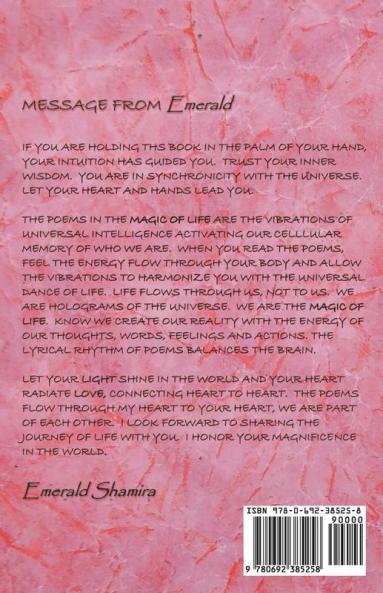 MESSAGE FROM Emerald
IF YOU ARE HOLDING THS BOOK IN THE PALM OF YOUR HAND,
YOUR INTUITION HAS GUIDED YOU. TRUST YOUR INNER
WISDOM. YOU ARE IN SYNCHRONICITY WITH THE UNIVERSE.
LET YOUR HEART AND HANDS LEAD YOU.
THE POEMS IN THE MAGIC OF LIFE ARE THE VIBRATIONS OF
UNIVERSAL INTELLIGENCE ACTIVATING OUR CELLLULAR
MEMORY OF WHO WE ARE. WHEN YOU READ THE POEMS,
FEEL THE ENERGY FLOW THROUGH YOUR BODY AND ALLOW
THE VIBRATIONS TO HARMONIZE YOU WITH THE UNIVERSAL
DANCE OF LIFE. LIFE FLOWS THROUGH US, NOT TO US. WE
ARE HOLOGRAMS OF THE UNIVERSE. WE ARE THE MAGIC OF
LIFE. KNOW WE CREATE OUR REALITY WITH THE ENERGY OF
OUR THOUGHTS, WORDS, FEELINGS AND ACTIONS. THE
LYRICAL RHYTHM OF POEMS BALANCES THE BRAIN.
LET YOUR LIGHT SHINE IN THE WORLD AND YOUR HEART
RADIATE LOVE, CONNECTING HEART TO HEART. THE POEMS
FLOW THROUGH MY HEART TO YOUR HEART, WE ARE PART
OF EACH OTHER. I LOOK FORWARD TO SHARING THE
JOURNEY OF LIFE WITH YOU. I HONOR YOUR MAGNIFICENCE
IN THE WORLD.
Emerald Shamira
ISBN 978-0-692-38525-8
90000
9 780692 385258